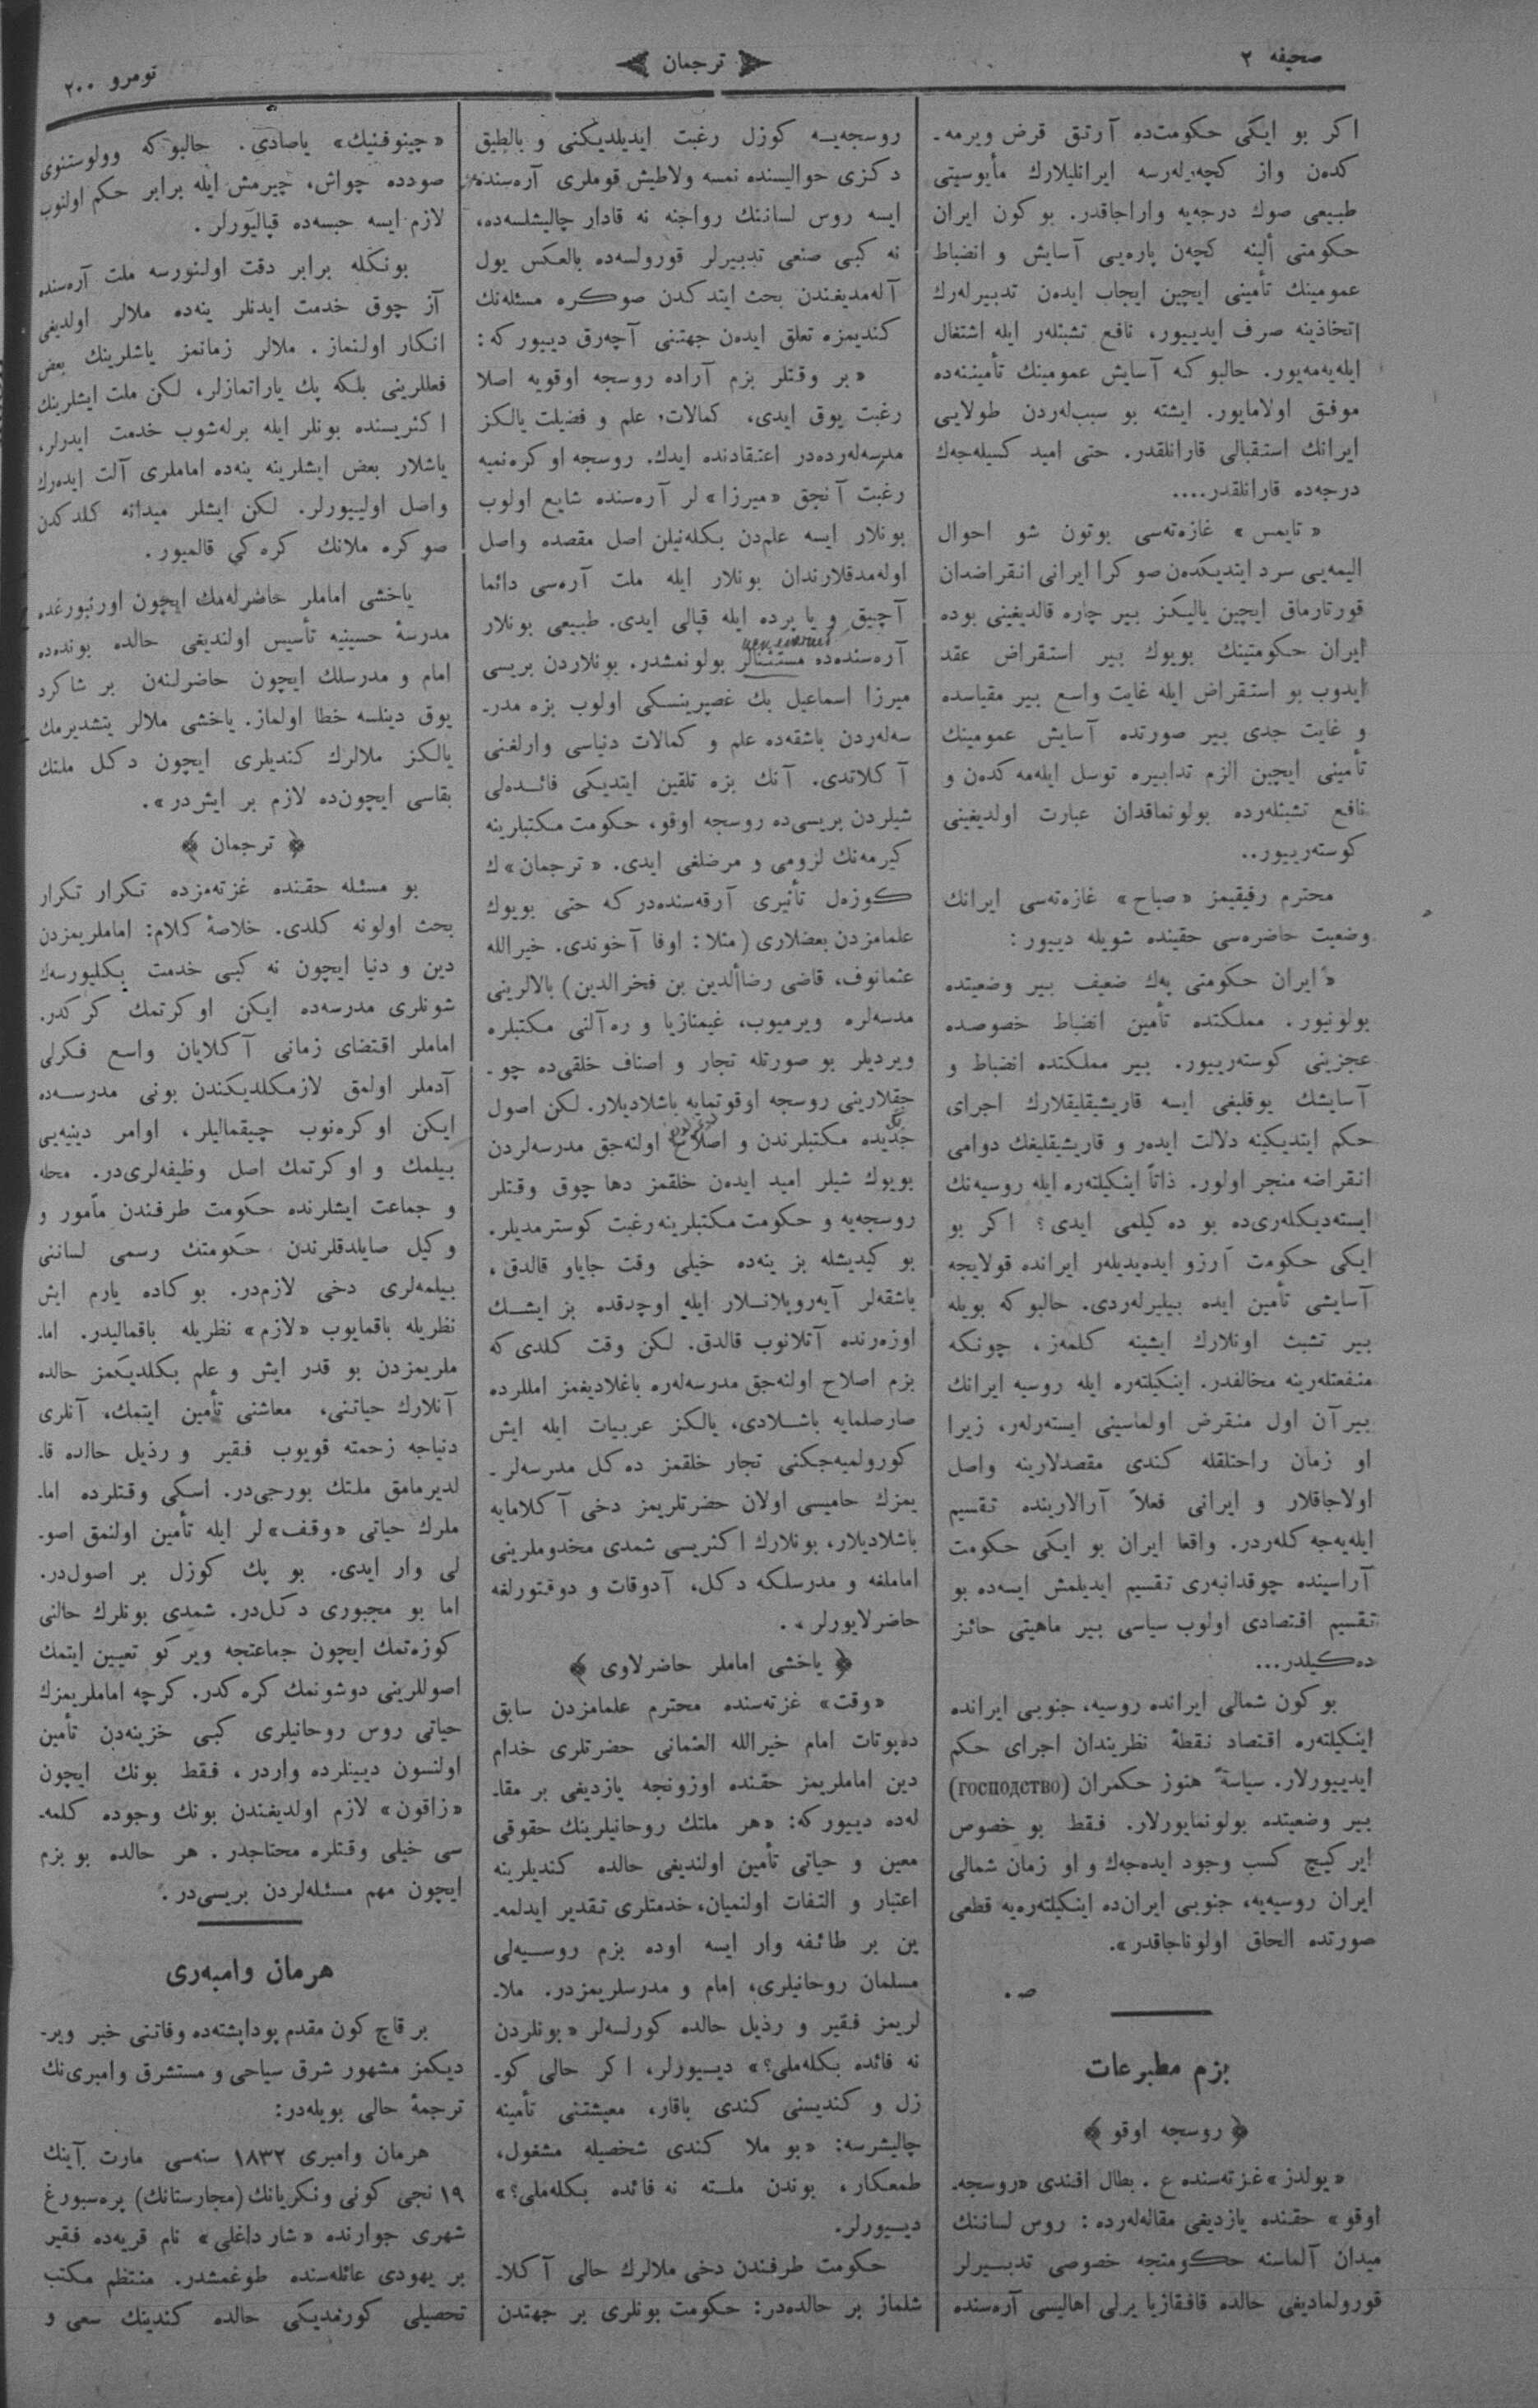 صحیفه ۲
ترجمان
نومرو ۲۰۰
اكر بو ایكی حكومت‌ده آرتق قرض ویرمه‌ـ
كدن واز كچه‌رلرسه ایرانلیلارك مأیوسیتی
طبیعی صوك درجه‌یه واراجاقدر. بو كون ایران
حكومتی ألینه كچه‌ن پاره‌یی آسایش و انضباط
عمومینك تأمینی ایچین ایجاب ایده‌ن تدبیرلرك
اتخاذینه صرف ایدییور، نافع تشبثلر ایله اشتغال
ایله‌یه‌مه‌یور. حالبو كه آسایش عمومینك تأمیننه‌ده
موفق اولامایور. ایشته بو سبب‌له‌ردن طولایی
ایرانك استقبالی قارانلقدر. حتی امید كسیله‌جه‌ك
درجه‌ده قارانلقدر....
«تایمس» غازه‌ته‌سی بوتون شو احوال
الیمه‌یی سرد ایتدیكده‌ن صوكرا ایرانی انقراضدان
قورتارماق ایچین یالیكز بیر چاره قالدیغینی بوده
ایران حكومتینك بویوك بیر استقراض عقد
ایدوب بو استقراض ایله غایت واسع بیر مقیاسده
و غایت جدی بیر صورتده آسایش عمومینك
تأمینی ایچین الزم تدابیره توسل ایله‌مه كده‌ن و
نافع تشبثله‌رده بولونماقدان عبارت اولدیغینی
كوسته‌رییور..
محترم رفیقیمز «صباح» غازه‌ته‌سی ایرانك
وضعیت حاضره‌سی حقینده شویله دییور:
«ایران حكومتی په‌ك ضعیف بیر وضعیتده
بولونیور. مملكتده تأمین انضباط خصوصده
عجزینی كوسته‌رییور. بیر مملكتده انضباط و
آسایشك یوقلیغی ایسه قاریشیقلیقلارك اجرای
حكم ایتدیكینه دلالت ایده‌ر و قاریشیقلیغك دوامی
انقراضه منجر اولور. ذاتاً اینكیلته‌ره ایله روسیه‌نك
ایسته‌دیكله‌ری‌ده بو ده كیلمی ایدی؟ اكر بو
ایكی حكومت آرزو ایده‌یدیله‌ر ایرانده قولایجه
آسایشی تأمین ایده بیلیرله‌ردی. حالبو كه بویله
بیر تشبث اونلارك ایشینه كلمه‌ز، چونكه
منفعتله‌رینه مخالفدر. اینكیلته‌ره ایله روسیه ایرانك
بیر آن اول منقرض اولماسینی ایسته‌رله‌ر، زیرا
او زمان راحتلقله كندی مقصدلارینه واصل
اولاجاقلار و ایرانی فعلاً آرالارینده تقسیم
ایله‌یه‌جه كله‌ردر. واقعا ایران بو ایكی حكومت
آراسینده چوقدانبه‌ری تقسیم ایدیلمش ایسه‌ده بو
تقسیم اقتصادی اولوب سیاسی بیر ماهیتی حائز
ده‌كیلدر...
بو كون شمالی ایرانده روسیه، جنوبی ایرانده
اینكیلته‌ره اقتصاد نقطهٔ نظریندان اجرای حكم
ایدییورلار. سیاسةً هنوز حكمران (господство)
بیر وضعیتده بولونمایورلار. فقط بو خصوص
ایر كیج كسب وجود ایده‌جه‌ك و او زمان شمالی
ایران روسیه‌یه، جنوبی ایران‌ده اینكیلته‌ره‌یه قطعی
صورتده الحاق اولوناجاقدر».
ص.
بزم مطبوعات
﴿ روسجه اوقو ﴾
«یولدز» غزته‌سنده ع. بطال افندی «روسجه‌ـ
اوقو» حقنده یازدیغی مقاله‌له‌رده: روس لساننك
میدان آلماسنه حكومتجه خصوصی تدبیرلر
قورولمادیغی حالده قافقازیا یرلی اهالیسی آره‌سنده
روسجه‌یـه كوزل رغبت ایدیلدیكنی و بالطیق
دكزی حوالیسنده نمسه ولاطیش قوملری آره‌سنده
ایسه روس لساننك رواجنه نه قادار چالیشلسه‌ده،
نه كبی صنعی تدبیرلر قورولسه‌ده بالعكس یول
آله‌مدیغندن بحث ایتدكدن صوكره مسئله‌نك
كندیمزه تعلق ایده‌ن جهتنی آچه‌رق دییور كه:
«بر وقتلر بزم آراده روسجه اوقویه اصلا
رغبت یوق ایدی، كمالات، علم و فضیلت یالكز
مدرسه‌له‌رده‌در اعتقادنده ایدك. روسجه اوكره‌نمیه
رغبت آنجق «میرزا» لر آره‌سنده شایع اولوب
بونلار ایسه علم‌دن بكله‌نیلن اصل مقصده واصل
اوله‌مدقلارندان بونلار ایله ملت آره‌سی دائما
آچیق و یا پرده ایله قپالی ایدی. طبیعی بونلار
آره‌سنده‌ده مستثنالر بولونمشدر. بونلاردن بریسی
میرزا اسماعیل بك غصپرینسكی اولوب بزه مدر‌ـ
سه‌له‌ردن باشقه‌ده علم و كمالات دنیاسی وارلغنی
آكلاتدی. آنك بزه تلقین ایتدیكی فائـده‌لی
شیلردن بریسی‌ده روسجه اوقو، حكومت مكتبلرینه
كیرمه‌نك لزومی و مرضلغی ایدی. «ترجمان» ك
كوزه‌ل تأثیری آرقه‌سنده‌در كه حتی بویوك
علمامزدن بعضلاری (مثلا: اوفا آخوندی. خیرالله
عثمانوف، قاضی رضاألدین بن فخرالدین) بالالرینی
مدسه‌لره ویرمیوب، غیمنازیا و ره‌آلنی مكتبلره
ویردیلر بو صورتله تجار و اصناف خلقی‌ده چو‌ـ
جقلارینی روسجه اوقوتمایه باشلادیلار. لكن اصول
جدیده مكتبلرندن و اصلاح اولنه‌جق مدرسه‌لردن
بویوك شیلر امید ایده‌ن خلقمز دها چوق وقتلر
روسجه‌یه و حكومت مكتبلرینه رغبت كوسترمدیلر.
بو كیدیشله بز ینه‌ده خیلی وقت جایاو قالدق،
باشقه‌لر آیه‌روپلانـلار ایله اوچدقده بز ایشـك
اوزه‌رنده آتلانوب قالدق. لكن وقت كلدی كه
بزم اصلاح اولنه‌جق مدرسه‌له‌ره باغلادیغمز امللرده
صارصلمایه باشـلادی، یالكز عربیات ایله ایش
كورولمیه‌جكنی تجار خلقمز ده‌كل مدرسه‌لر‌ـ
یمزك حامیسی اولان حضرتلریمز دخی آكلامایه
باشلادیلار، بونلارك اكثریسی شمدی مخدوملرینی
اماملغه و مدرسلكه دكل، آدوقات و دوقتورلغه
حاضرلایورلر».
﴿ یاخشی اماملر حاضرلاوی ﴾
«وقت» غزته‌سنده محترم علمامزدن سابق
ده‌پوتات امام خیرالله العثمانی حضرتلری خدام
دین اماملریمز حقنده اوزونجه یازدیغی بر مقا‌ـ
له‌ده دییور كه: «هر ملتك روحانیلرینك حقوقی
معین و حیاتی تأمین اولندیغی حالده كندیلرینه
اعتبار و التفات اولنمیان، خدمتلری تقدیر ایدلمه‌ـ
ین بر طائفه وار ایسه اوده بزم روسـیه‌لی
مسلمان روحانیلری، امام و مدرسلریمزدر. ملا‌ـ
لریمز فقیر و رذیل حالده كورلسه‌لر «بونلردن
نه فائده بكله‌ملی؟» دیـیورلر، اكر حالی كو‌ـ
زل و كندیسنی كندی باقار، معیشتنی تأمینه
چالیشرسه: «بو ملا كندی شخصیله مشغول،
طمعكار، بوندن ملـته نه فائده بكله‌ملی؟»
دیـیورلر.
حكومت طرفندن دخی ملالرك حالی آكلا‌ـ
شلماز بر حالده‌در: حكومت بونلری بر جهتدن
«چینوفنیك» یاصادی. حالبو كه وولوستنوی
صودده چواش، چیرمش ایله برابر حكم اولنوب
لازم ایسه حبسه‌ده قپالیورلر.
بونكله برابر دقت اولنورسه ملت آره‌سنده
آز چوق خدمت ایدنلر ینه‌ده ملالر اولدیغی
انكار اولنماز. ملالر زمانمز یاشلرینك بعض
فعللرینی بلكه پك یاراتمازلر، لكن ملت ایشلرینك
اكثریسنده بونلر ایله برله‌شوب خدمت ایدرلر،
یاشلار بعض ایشلرینه ینه‌ده اماملری آلت ایده‌رك
واصل اولییورلر. لكن ایشلر میدانه كلدكدن
صوكره ملانك كره‌كی قالمیور.
یاخشی اماملر حاضرله‌مك ایچون اورنبورغده
مدرسهٔ حسینیه تأسیس اولندیغی حالده بونده‌ده
امام و مدرسلك ایچون حاضرلنه‌ن بر شاكرد
یوق دینلسه خطا اولماز. یاخشی ملالر یتشدیرمك
یالكز ملالرك كندیلری ایچون دكل ملتك
بقاسی ایچون‌ده لازم بر ایش‌در».
﴿ ترجمان ﴾
بو مسئله حقنده غزته‌مزده تكرار تكرار
بحث اولونه كلدی. خلاصهٔ كلام: اماملریمزدن
دین و دنیا ایچون نه كبی خدمت بكلیورسه‌ك
شونلری مدرسه‌ده ایكن اوكرتمك كركدر.
اماملر اقتضای زمانی آكلایان واسع فكرلی
آدملر اولمق لازمكلدیكندن بونی مدرسـه‌ده
ایكن اوكره‌نوب چیقمالیلر، اوامر دینیه‌یی
بیلمك و اوكرتمك اصل وظیفه‌لری‌در. محله
و جماعت ایشلرنده حكومت طرفندن مأمور و
وكیل صایلدقلرندن حكومتك رسمی لساننی
بیلمه‌لری دخی لازم‌در. بوكاده یارم ایش
نظریله باقمایوب «لازم» نظریله باقمالیدر. اما‌ـ
ملریمزدن بو قدر ایش و علم بكلدیكمز حالده
آنلارك حیاتنی، معاشنی تأمین ایتمك، آنلری
دنیاجه زحمته قویوب فقیر و رذیل حالده قا‌ـ
لدیرمامق ملتك بورجی‌در. اسكی وقتلرده اما‌ـ
ملرك حیاتی «وقف» لر ایله تأمین اولنمق اصو‌ـ
لی وار ایدی. بو پك كوزل بر اصول‌در.
اما بو مجبوری دكل‌در. شمدی بونلرك حالنی
كوزه‌تمك ایچون جماعتجه ویركو تعیین ایتمك
اصوللرینی دوشونمك كره‌كدر. كرچه اماملریمزك
حیاتی روس روحانیلری كبی خزینه‌دن تأمین
اولنسون دیینلرده واردر، فقط بونك ایچون
«زاقون» لازم اولدیغندن بونك وجوده كلمه‌ـ
سی خیلی وقتلره محتاجدر. هر حالده بو بزم
ایچون مهم مسئله‌لردن بریسی‌در.
هرمان وامبه‌ری
بر قاچ كون مقدم بوداپشته‌ده وفاتنی خبر ویر‌ـ
دیكمز مشهور شرق سیاحی و مستشرق وامبری‌نك
ترجمهٔ حالی بویله‌در:
هرمان وامبری ۱۸۳۲ سنه‌سی مارت آینك
۱۹ نجی كونی ونكریانك (مجارستانك) پره‌سبورغ
شهری جوارنده «شارداغلی» نام قریه‌ده فقیر
بر یهودی عائله‌سنده طوغمشدر. منتظم مكتب
تحصیلی كورنمدیكی حالده كندینك سعی و